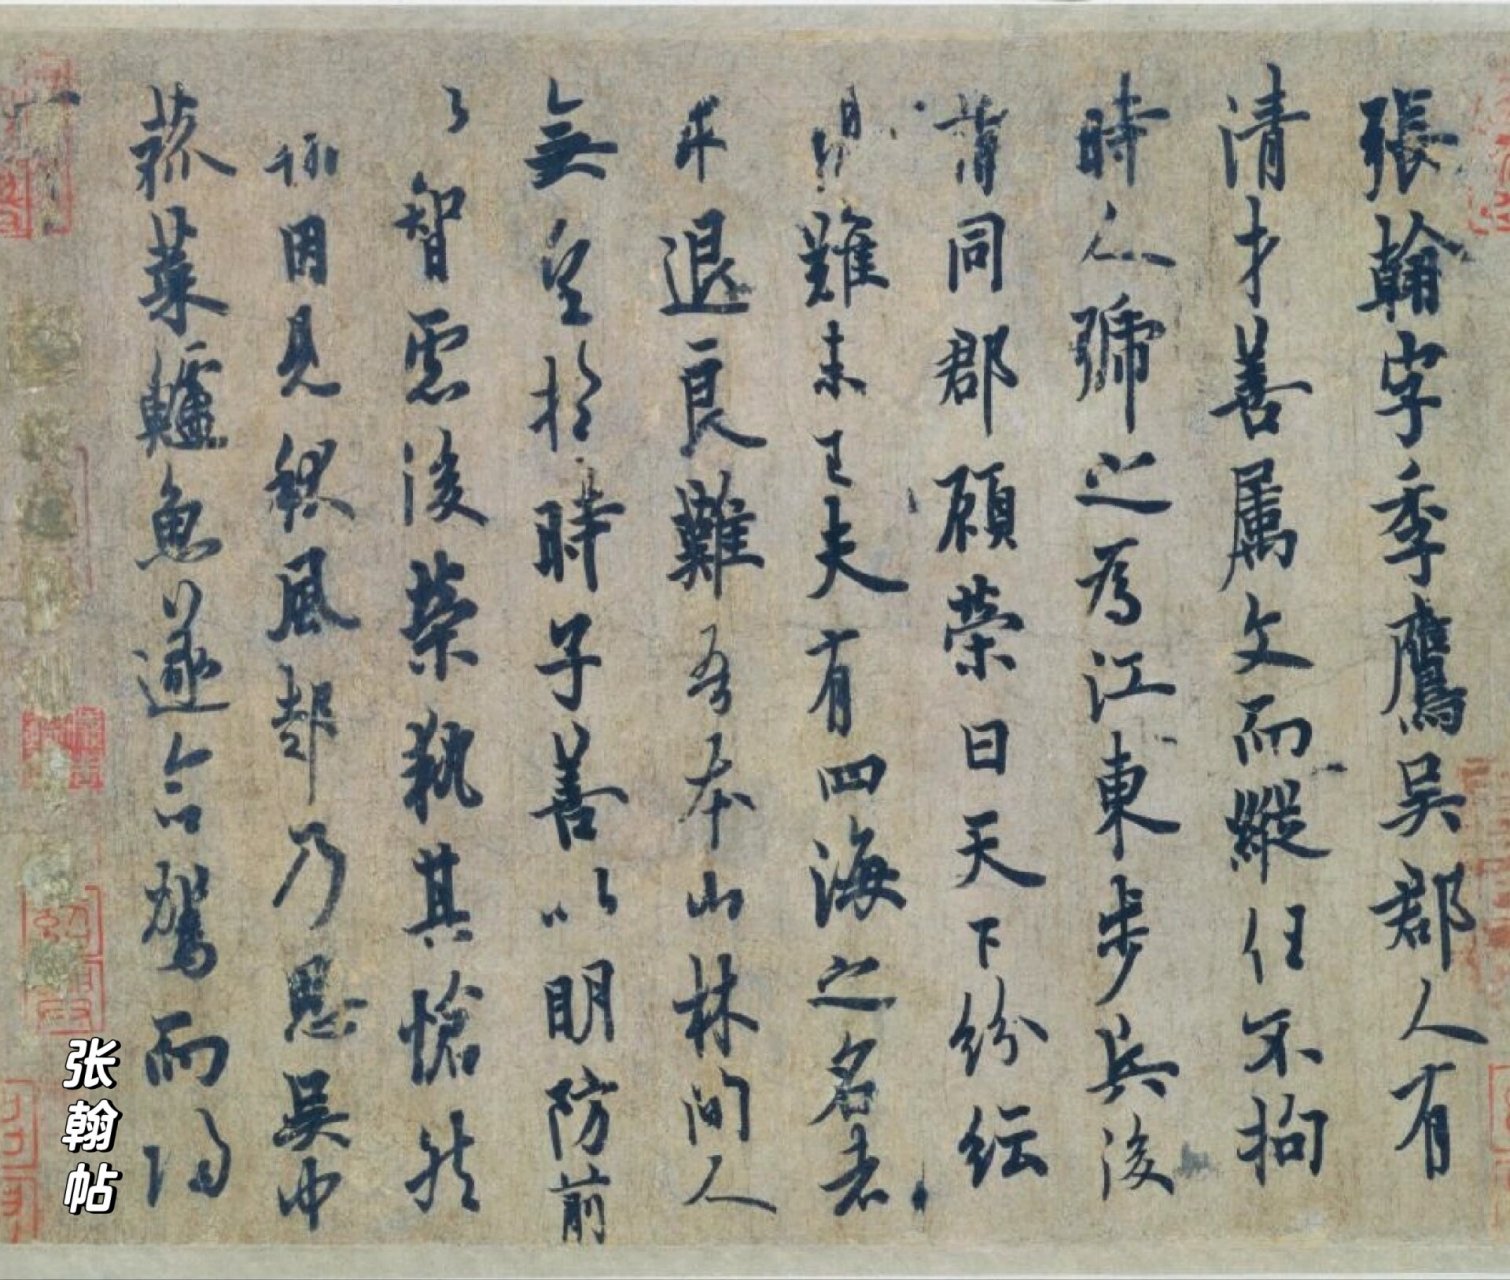 張翰字季鷹吳郡人有
清才善属文而縱任不拘
時人號之為江東步兵後
同郡顧榮曰天下紛紜
難未已夫有四海之名者
求退良難吾本山林間人
無望於時子善以明防前
以智慮後榮執其愴然
因見秋風起乃思吳中
菰菜鱸魚遂命駕而歸
张翰帖